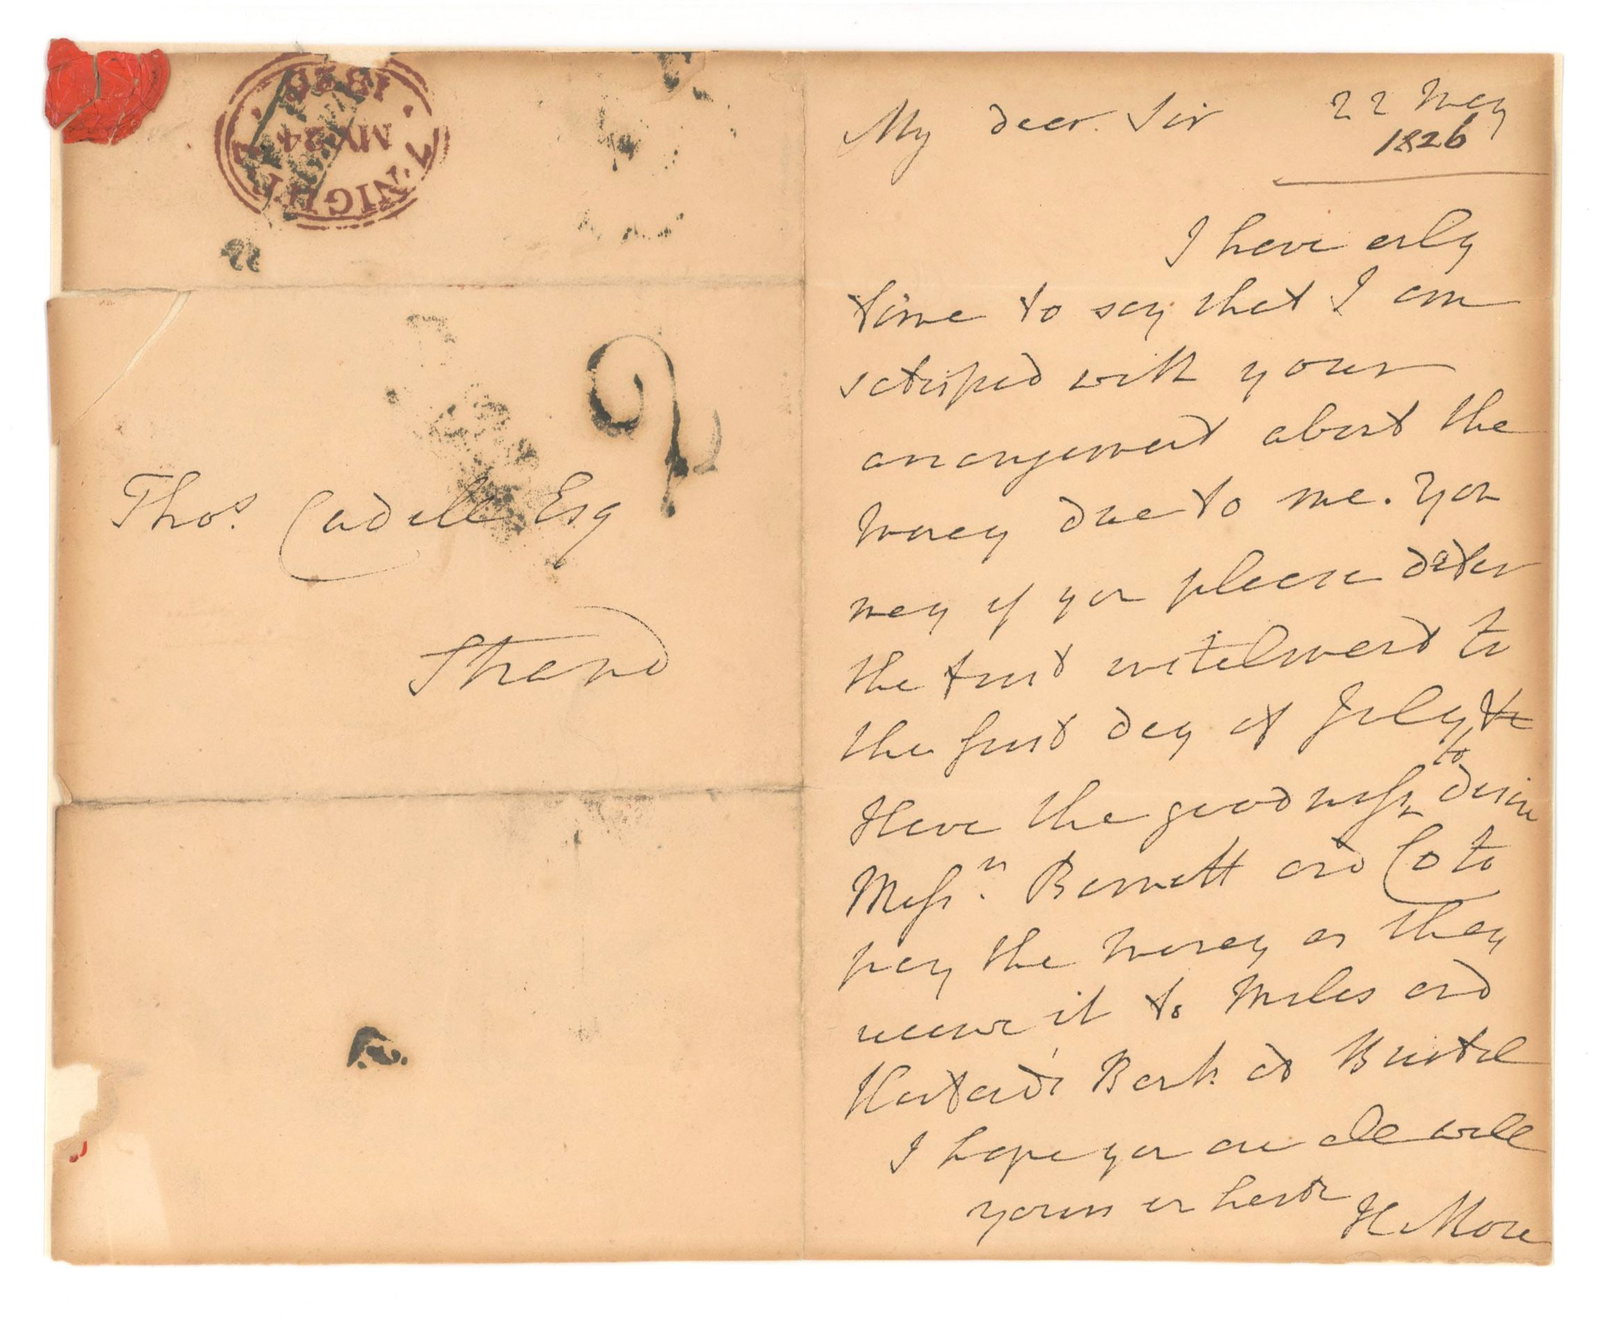 7. NIGHT. 7
MY. 24
1826
2
Thos. Cadell Esq
Strand
My dear Sir
22 May
1826
I have only
time to say that I am
satisfied with your
arrangement about the
money due to me. You
may if you please defer
the first instalment to
the first day of July
to
Have the goodness desire
Messrs. Barnett and Co to
pay the money as they
receive it to Miles and
Harfords Bank at Bristol
I hope you are all well
yours in haste
H More